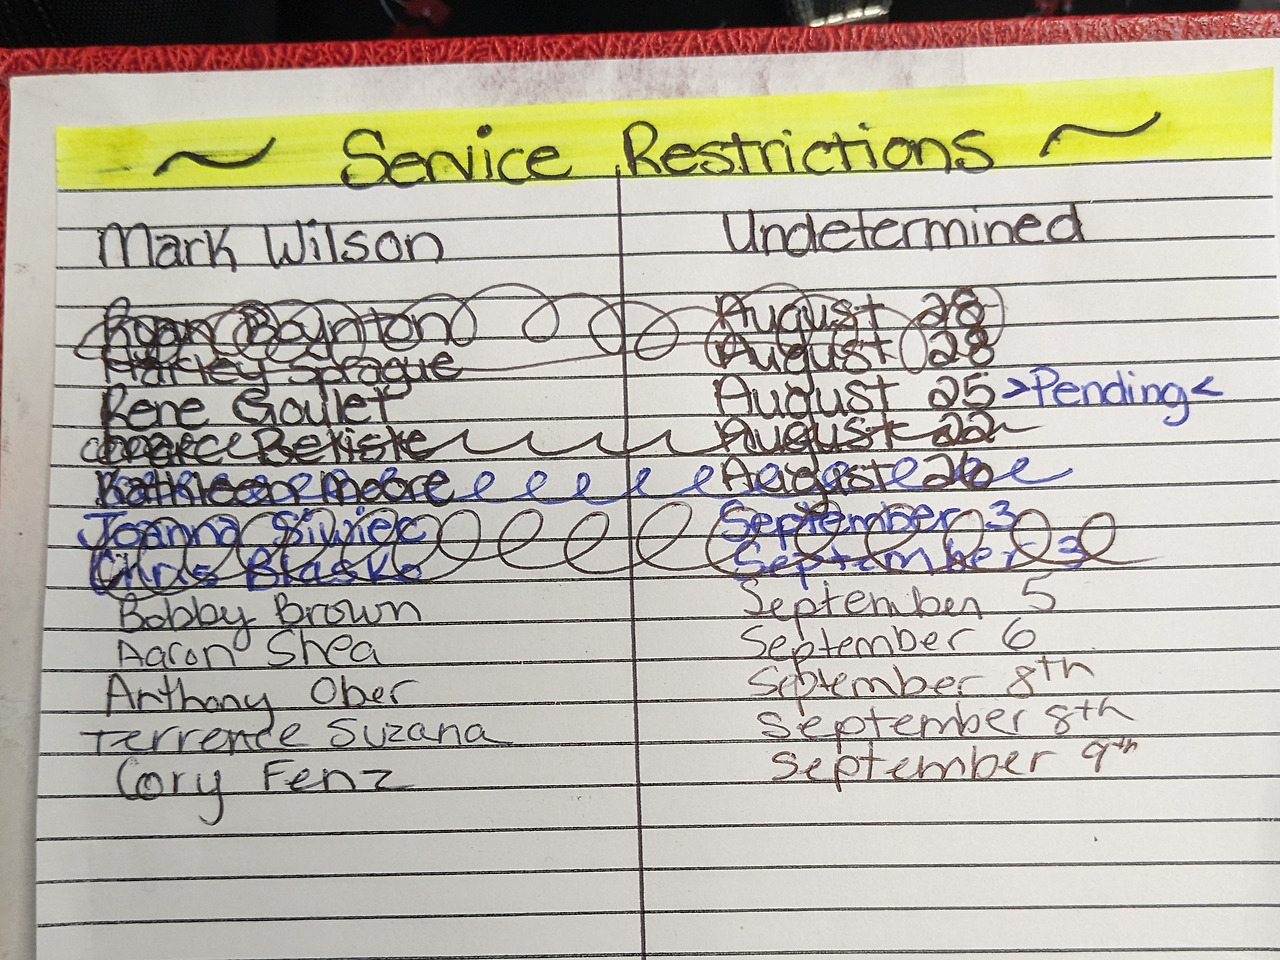 ~ Service Restrictions ~
Mark Wilson Undetermined
Ryan Boynton August 28
Harley Sprague August 28
Rene Goulet August 25 >Pending<
August 22
Kathleen Moore August 26
Joanna Siwiec September 3
Chris Blasko September 3
Bobby Brown September 5
Aaron Shea September 6
Anthony Ober September 8th
Terrence Suzana September 8th
Cory Fenz September 9th